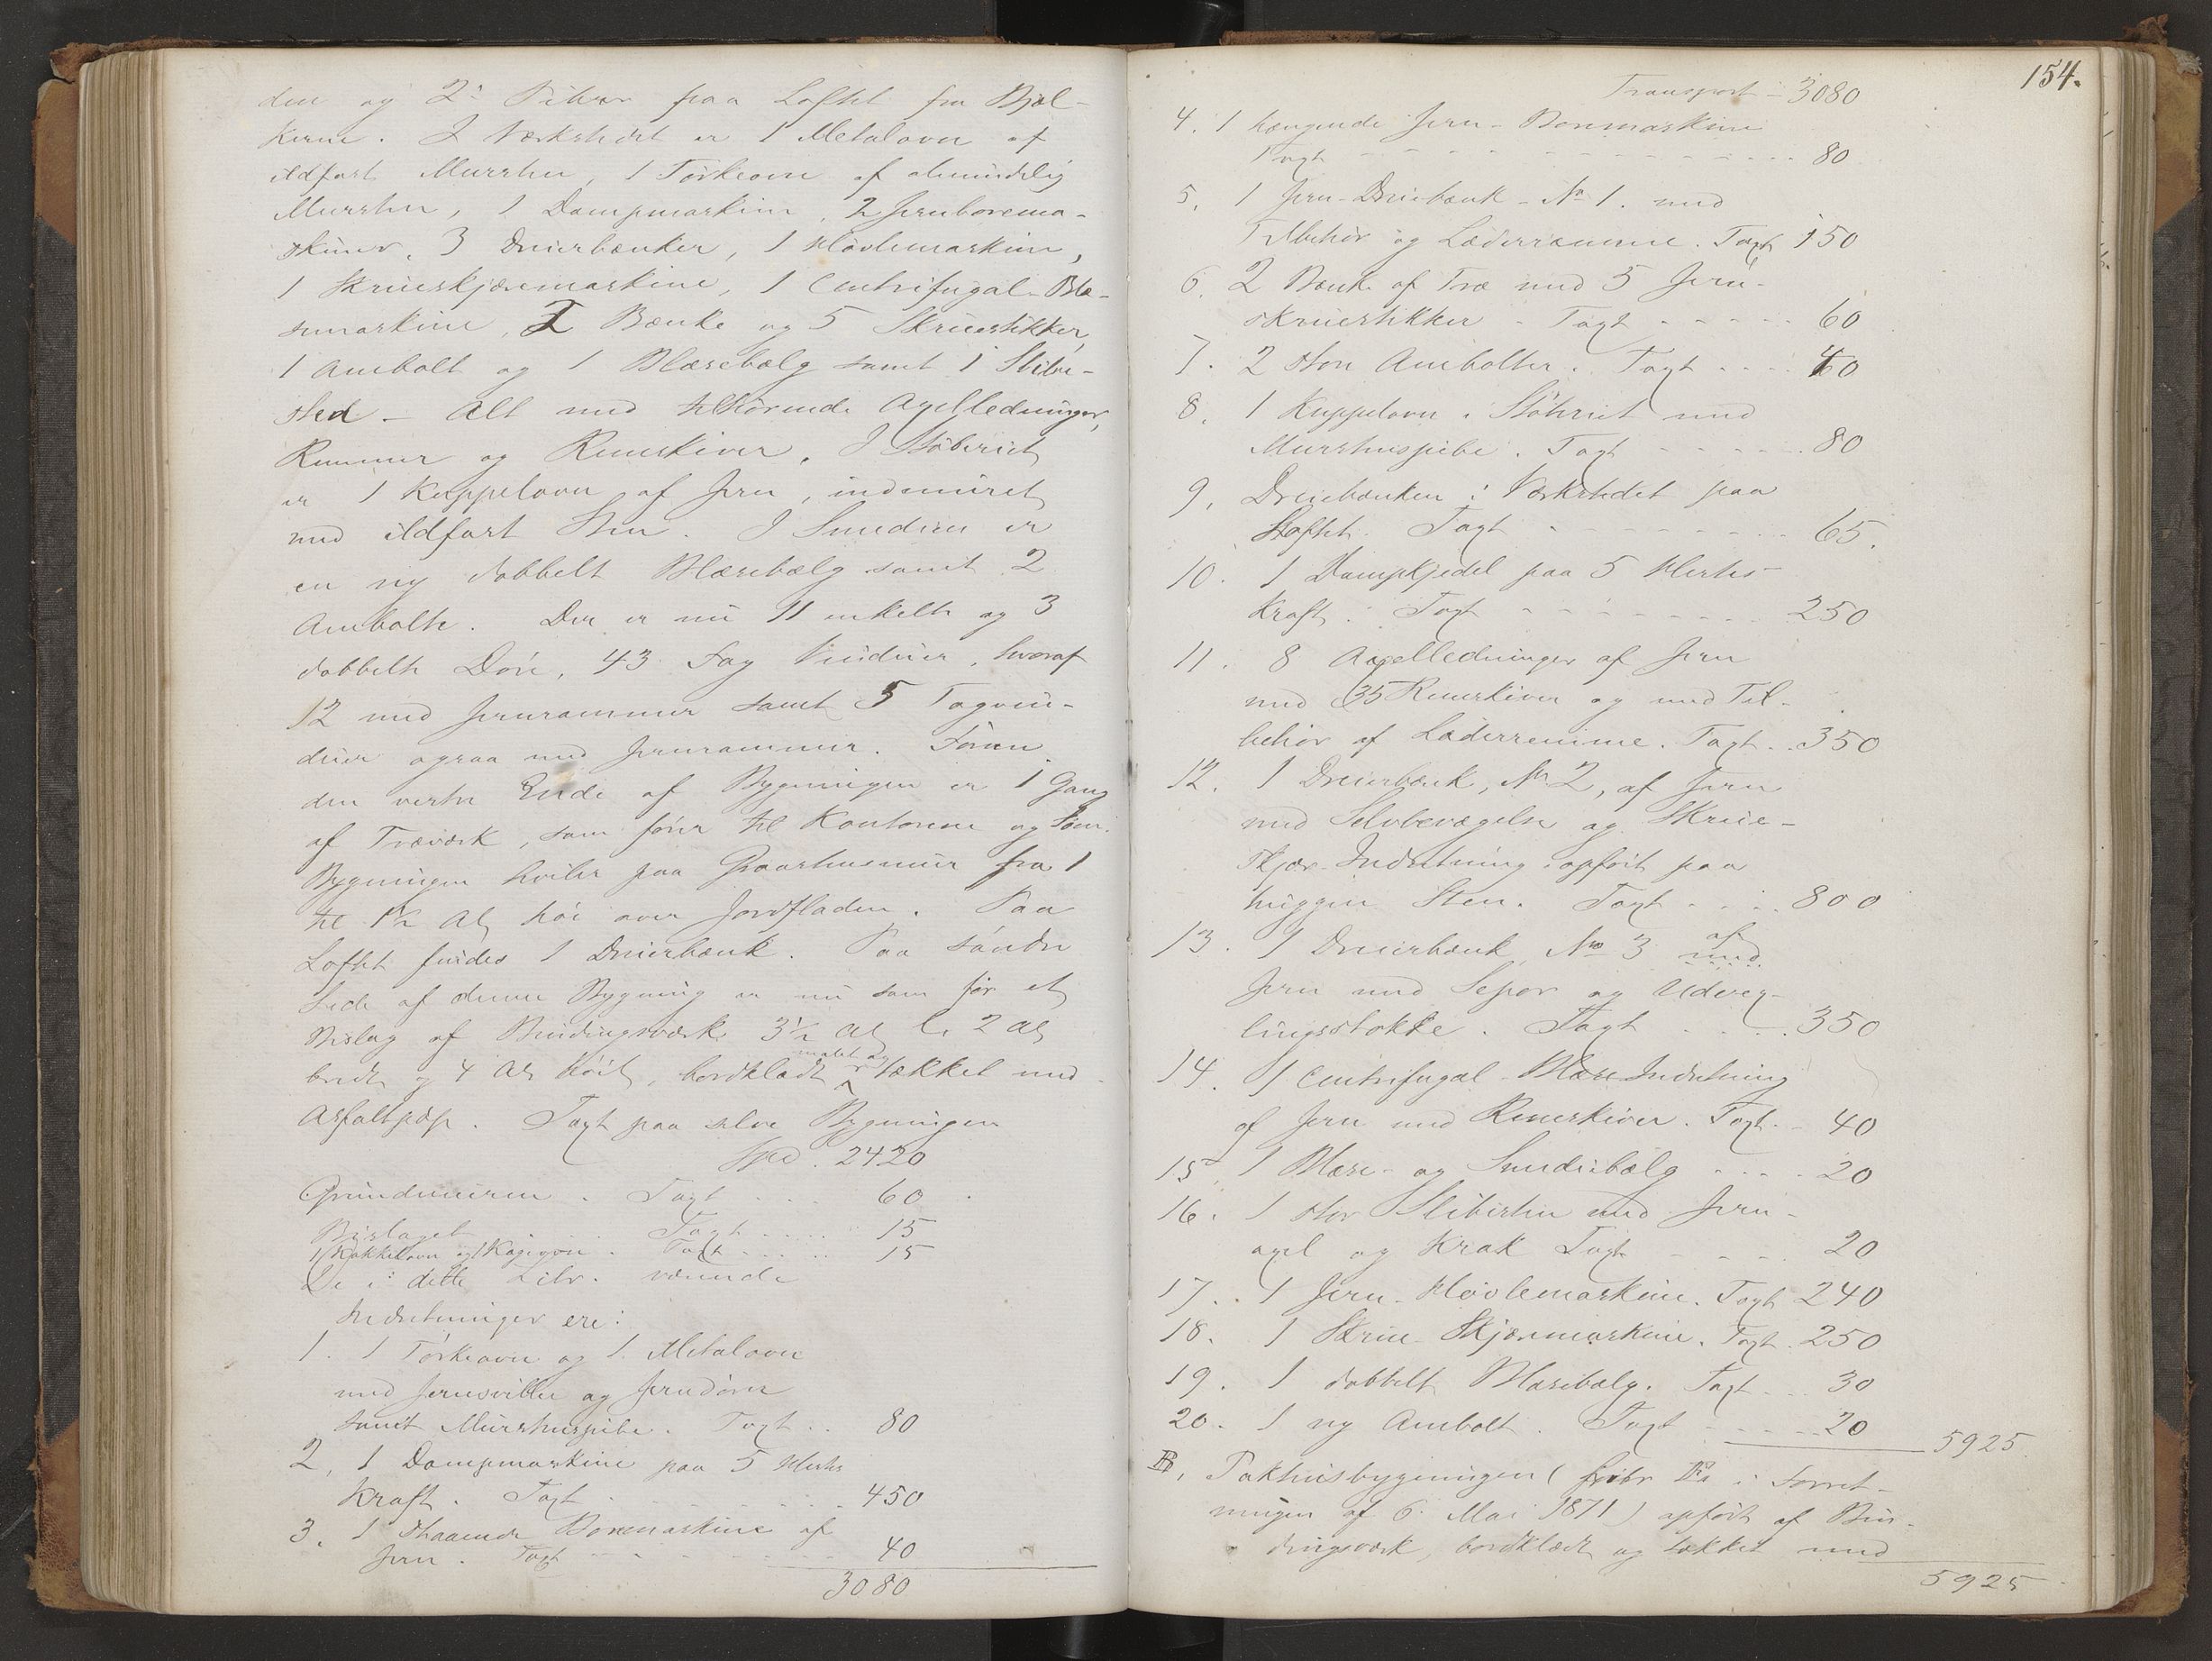 den og 2de Piber paa Loftet fra Bjæl-
kerne. I Værkstedet er 1 Metalovn af
ildfast Mursten, 1 Tørkeovn af almindelig
Mursten, 1 Dampmaskine, 2 Jernborema-
skiner, 3 Dreierbænker, 1 Høvlemaskine,
1 Skrueskjæremaskine, 1 Centrifugal-Blæ-
semaskine, 2 Bænke og 5 Skruestikker,
1 Ambolt og 1 Blæsebælg samt 1 Slibe-
sted - Alt med tilhørende Axelledninger,
Remmer og Remskiver. I Støberiet
er 1 Kuppelovn af Jern, indmuret
med ildfast Sten. I Smedien er
en ny dobbelt Blæsebælg samt 2
Ambolte. Der er nu 11 enkelte og 3
dobbelte Døre, 43 Fag Vinduer, hvoraf
12 med Jernrammer samt 5 Tagvin-
duer ogsaa med Jernrammer. Foran
den vestre Ende af Bygningen er 1 Gang
af Træværk, som fører til Kontorene og
Bygningen hviler paa Graastensmur fra 1
til 1½ Al. høi over Jordfladen. Paa
Loftet findes 1 Dreierbænk. Paa søndre
Side af denne Bygning er nu som før et
Bislag af Bindingsværk 3½ Al. l. 2 Al.
bredt og 4 Al. høit, bordklædt malet og tækket med
Asfaltpap. Taxt paa selve Bygningen
Spd. 2420
Grundmuren. Taxt . . . 60
Bislaget . . . Taxt . . . 15
1 Kakkelovn og 1 Kogeovn. Taxt . . . 15
De i dette Litr. værende
Indretninger ere:
1. 1 Tørkeovn og 1 Metalovn
med Jernsviller og Jerndøre
samt Murstenspibe. Taxt . . 80
2. 1 Dampmaskine paa 5 Hestes
Kraft. Taxt . . . 450
3. 1 staaende Boremaskine af
Jern. Taxt . . . 40
3080
154.
Transport - 3080
4. 1 hængende Jern-Boremaskine
Taxt . . . 80
5. 1 Jern-Dreiebænk - No 1. med
Tilbehør og Læderremme. Taxt 150
6. 2 Bænke af Træ med 5 Jern-
skruestikker - Taxt . . . 60
7. 2 store Ambolter. Taxt . . . 40
8. 1 Kuppelovn i Støberiet med
Murstenspibe. Taxt . . . 80
9. Dreiebænken i Værkstedet paa
Loftet. Taxt . . . 65.
10. 1 Dampkjedel paa 5 Hestes
Kraft. Taxt . . . 250
11. 8 Axelledninger af Jern
med 35 Remskiver og med Til-
behør af Læderremme. Taxt . . 350
12. 1 Dreierbænk, No 2, af Jern
med Selvbevægelse og Skrue-
skjær-Indretning opført paa
huggen Sten. Taxt . . . 800
13. 1 Dreierbænk No 3 af med
Jern med og Udvex-
lingsstokke. Taxt . . . 350
14. 1 Centrifugal-Blæse Indretning
af Jern med Remskiver. Taxt - 40
15. 1 Blæse- og Smediebælg . . . 20
16. 1 stor Slibesten med Jern-
axel og Krak Taxt . . . 20
17. 1 Jern-Høvlemaskine. Taxt 240
18. 1 Skrue-Skjæremaskine. Taxt . 250
19. 1 dobbelt Blæsebælg. Taxt . . 30
20. 1 ny Ambolt. Taxt . . . 20
5925
B. Pakhusbygningen (Litr. i Forret-
ningen af 6. Mai 1871) opført af Bin-
dingsværk, bordklædt og tækket med
5925